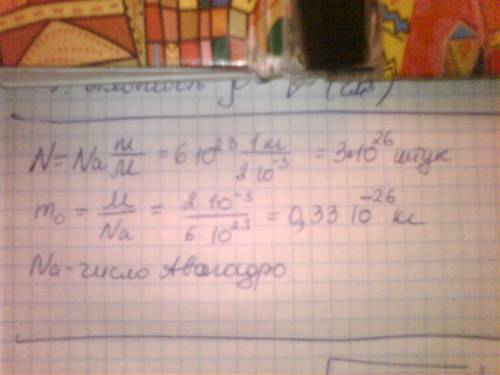 N = Na m/M = 6 10^23 1 кг / 2 10^-3 = 3•10^26 штук
m₀ = M/Na = 2 10^-3 / 6 10^23 = 0,33 10^-26 кг
Na - число Авогадро